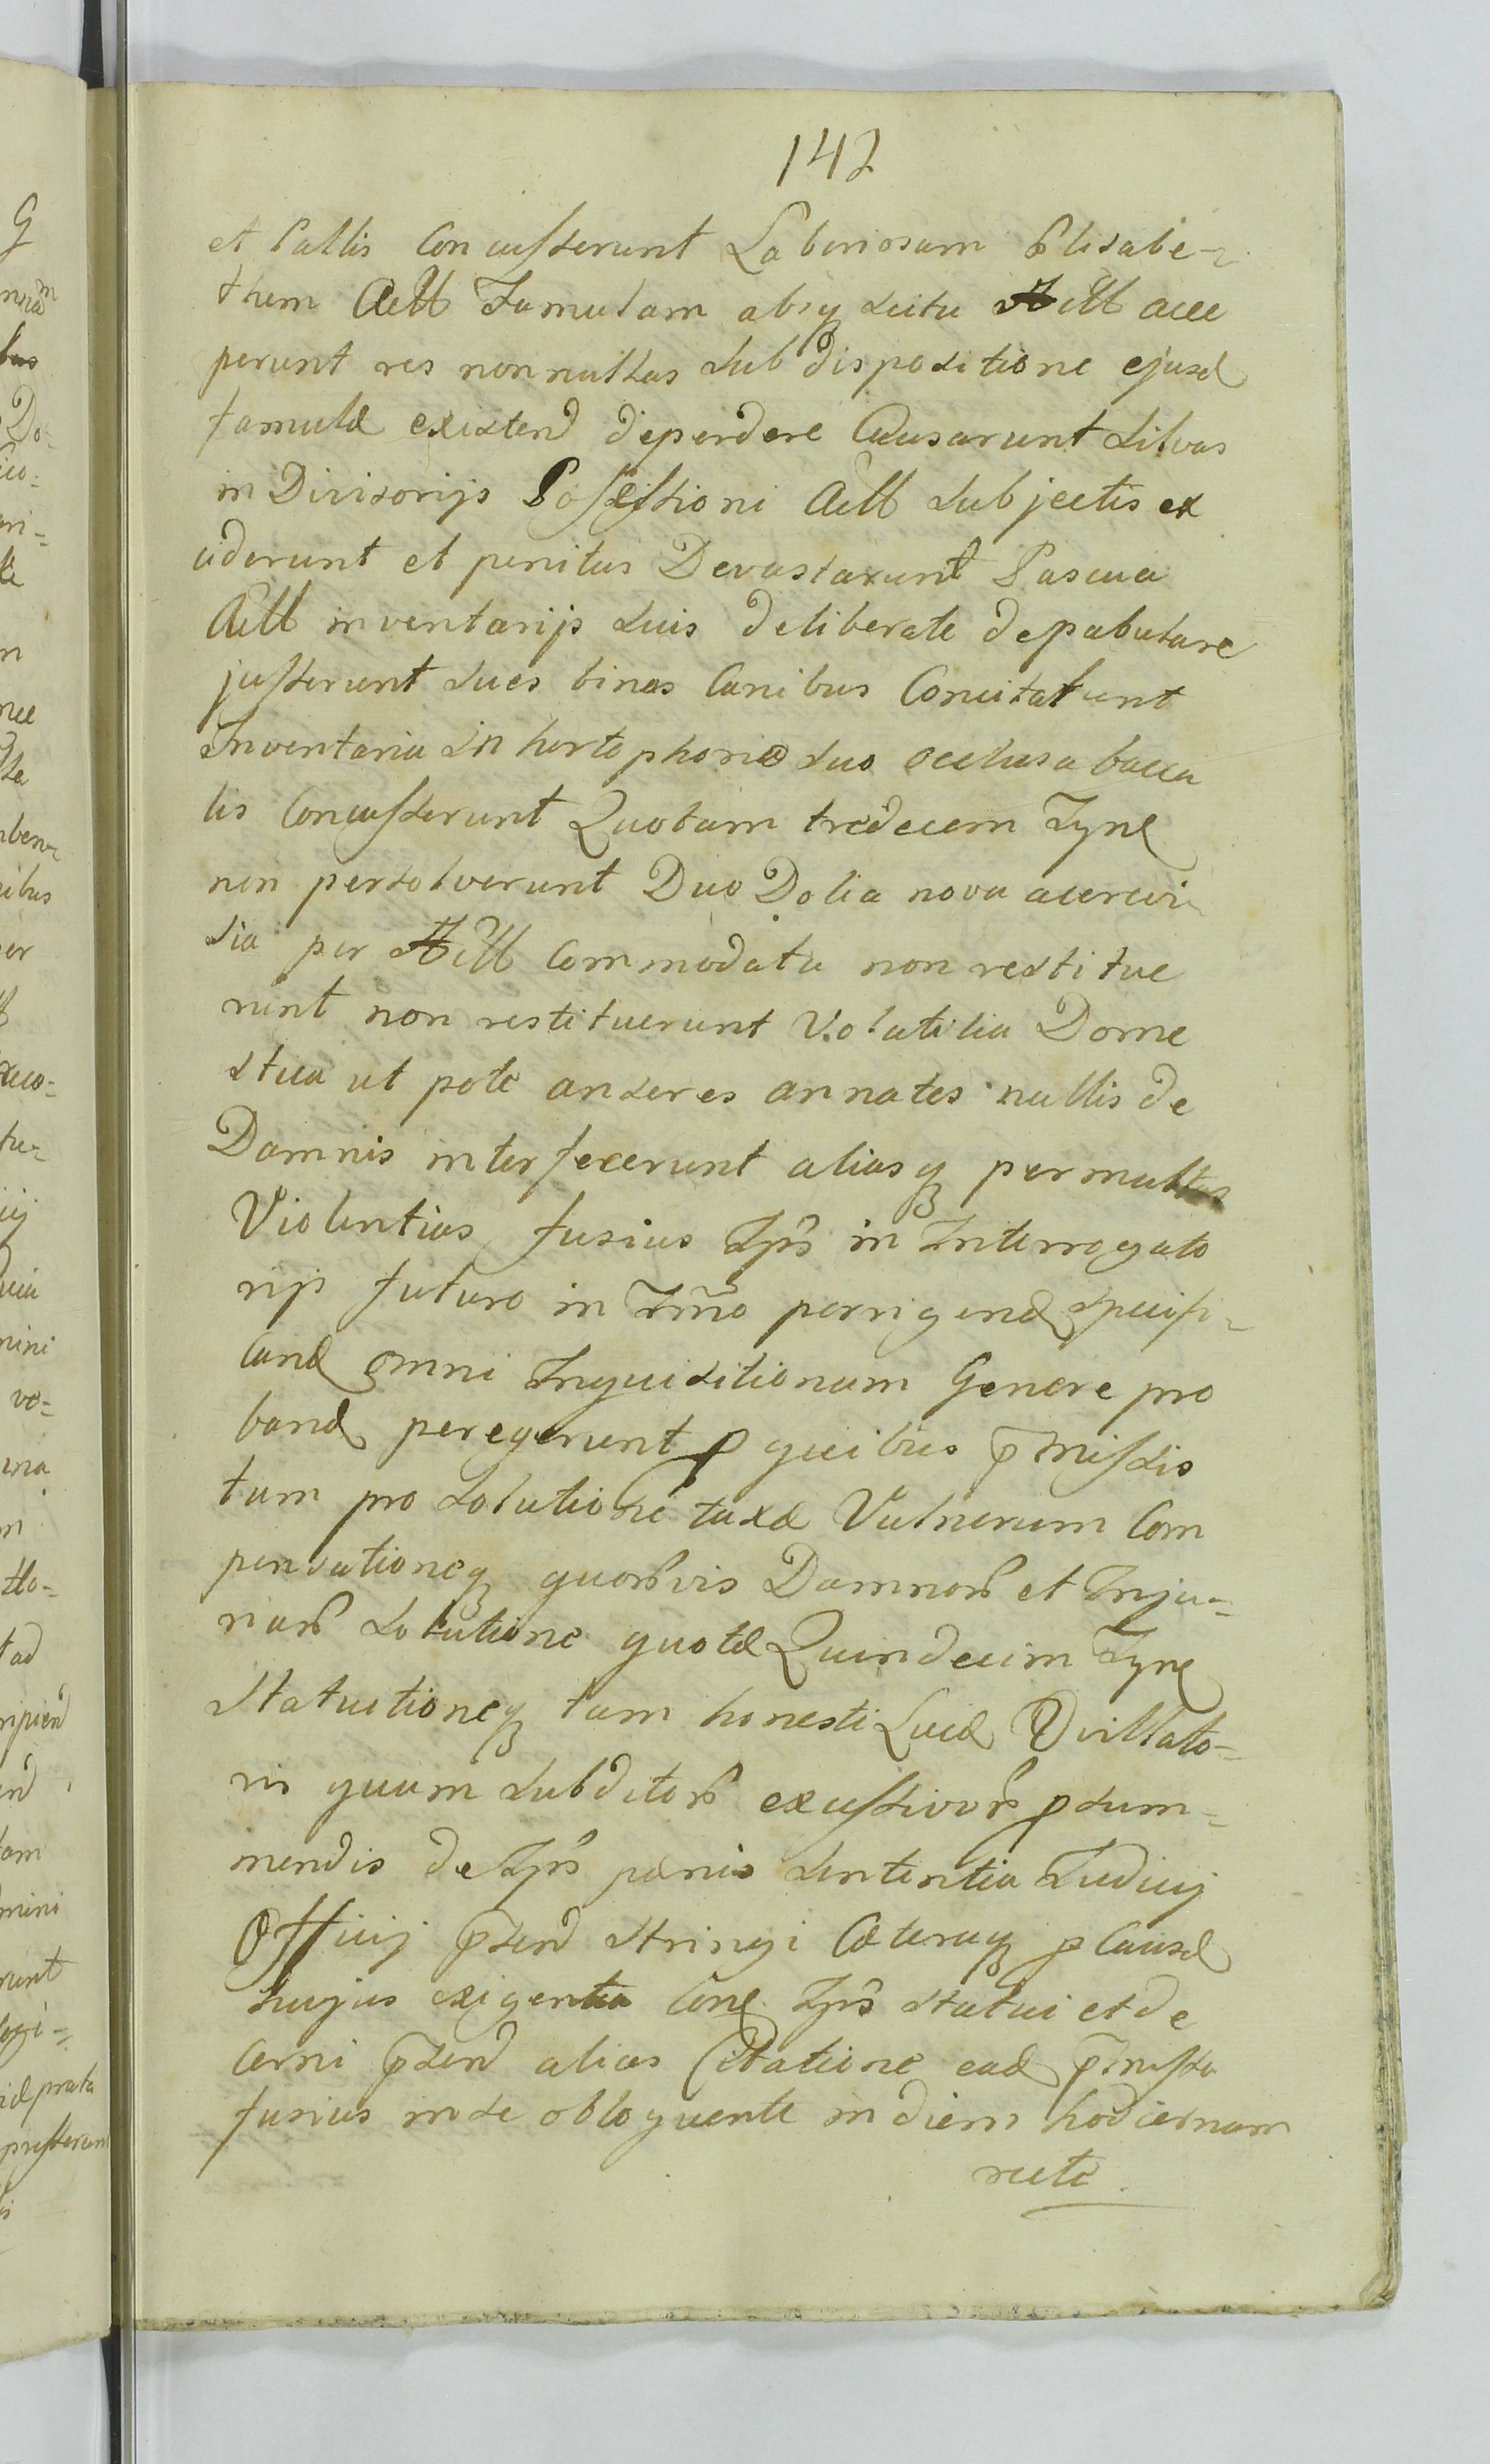 142
et Pallis Concusserunt Laboriosam Elisabe-
them Actt Famulam absq scitu Actt acce
perunt res nonnullas sub dispositione ejusd
famulæ existend deperdere Causarunt silvas
in Divisorijs Possessioni Actt subjectis ex
ciderunt et penitus Devastarunt Pascua
Actt inventarijs suis deliberate depabulare
jusserunt sues binas Canibus Concitarunt
Inventaria in horto phorio suo occlusa bacca
lis Concusserunt Quotam tredecem Tynf
non persolverunt Duo Dolia nova acerevi
sia per Actt Commodata non restitue
runt non restituerunt Volatilia Dome
stica ut pote anseres annates nullis de
Damnis interfecerunt aliasq permultas
Violentias fusius Ipīs in Interrogato
rijs futuro in Trmno porrigend specifi-
cand omni Inquisitionum Genere pro
band peregerunt p quibus p̄missis
tum pro solutione taxæ Vulnerum Com
pensationeq quorvis Damnor et Inju-
riar solutione quotæ Quindecim Tynf
Statuitioneq tam honesti Lucæ Dvillato-
ris quam subditor excessivor p sum-
mendis de Ipīs pænis sententia Judicij
Officij p̄tend stringi Cæteraq p Causæ
hujus exigentia Cond Ipīs statui et de
cerni p̄tend alias Citatione ead p̄missa
fusius in se obloquente in diem hodiernam
rite.